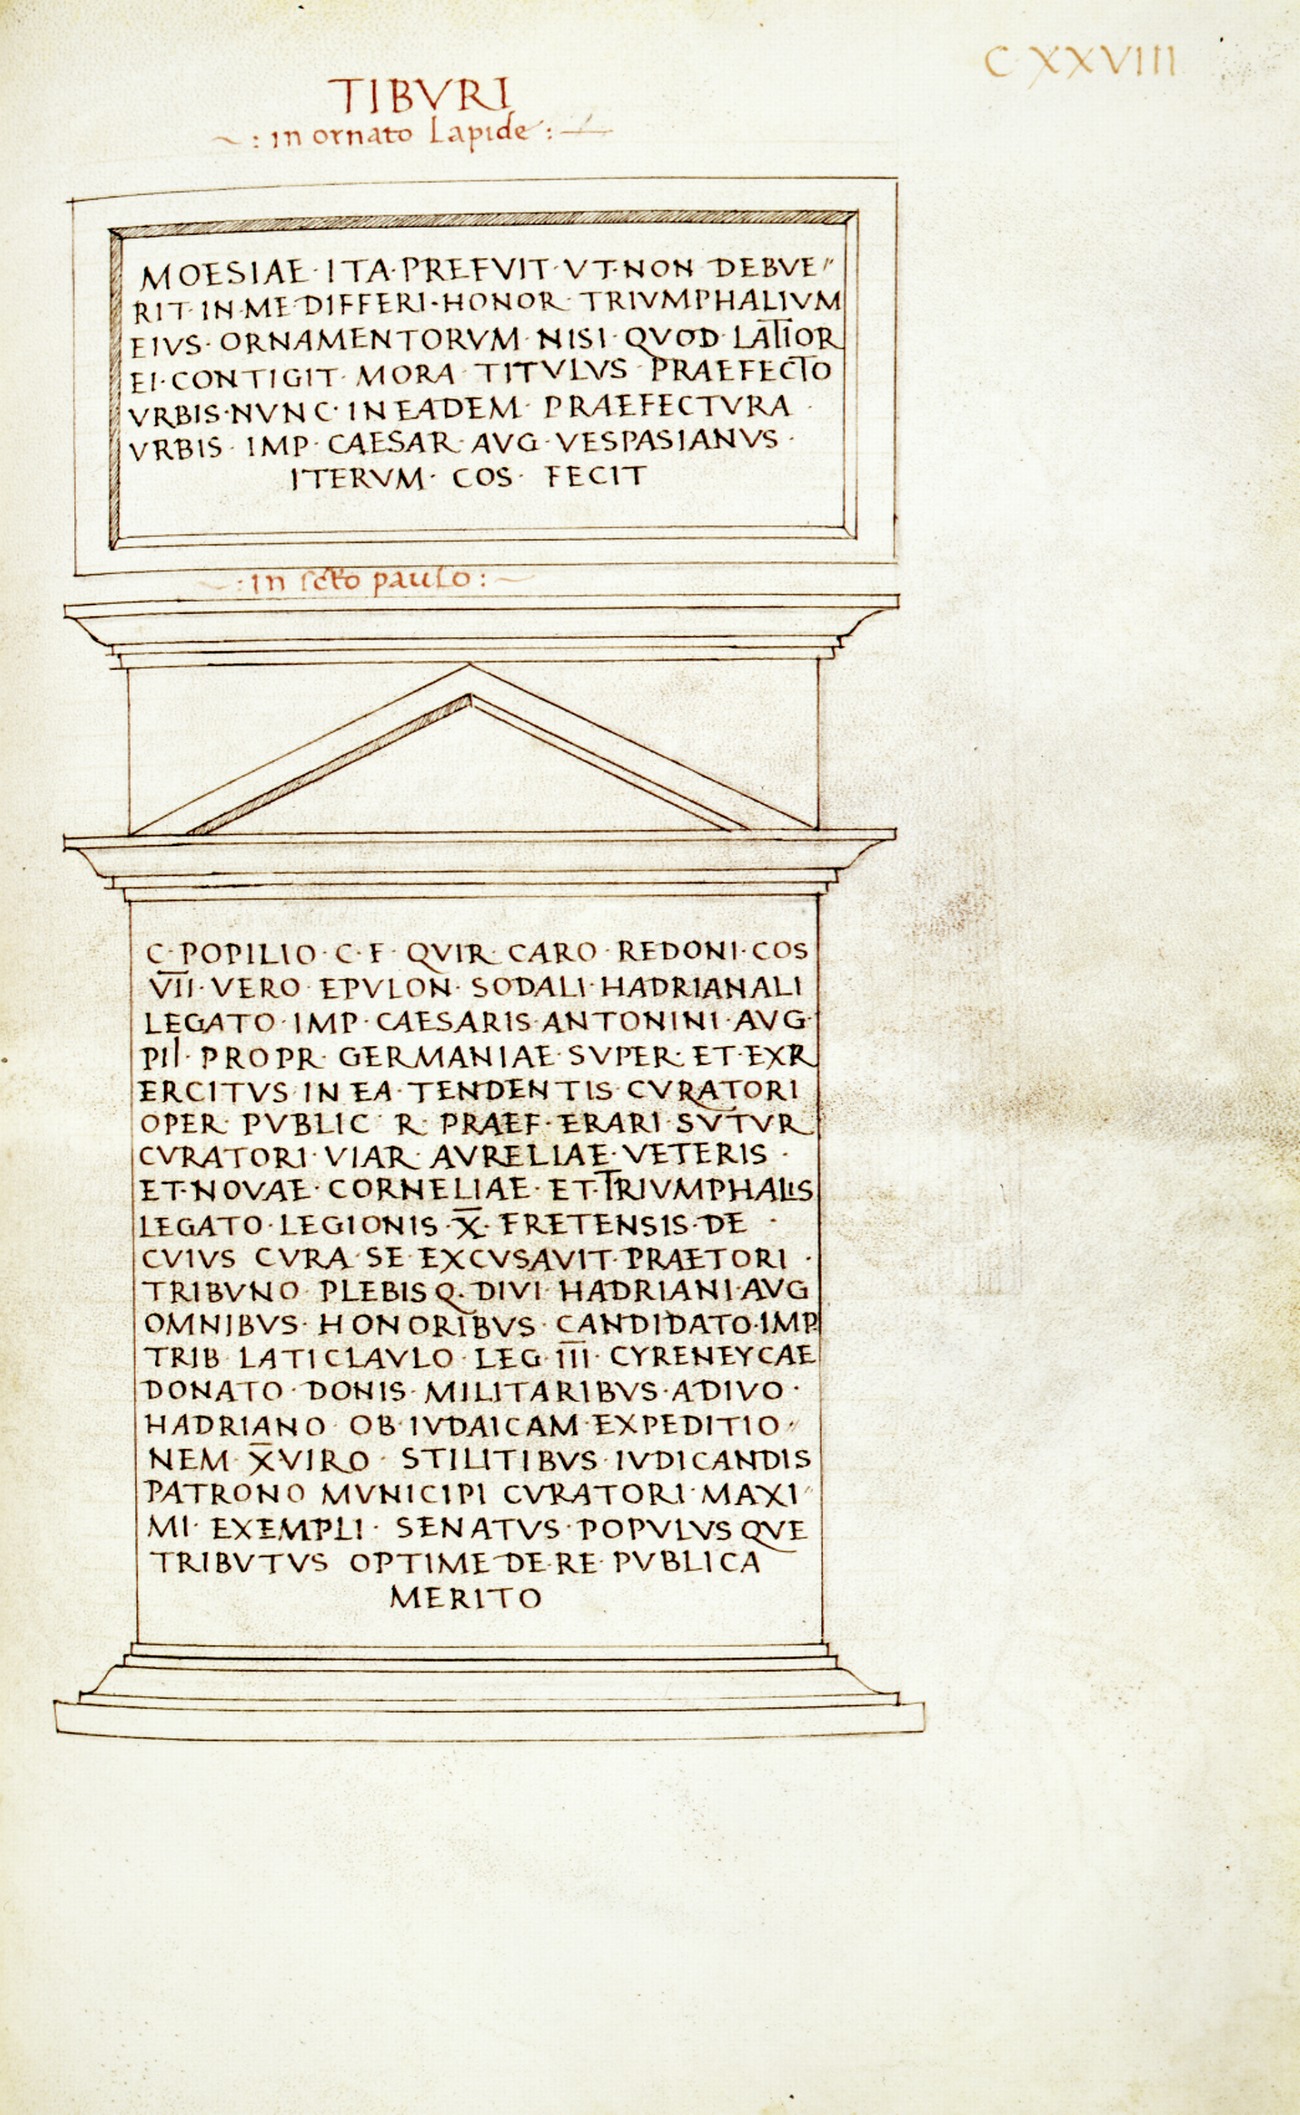 C XXVIII
TIBVRI
~ : in ornato Lapide : ~
MOESIAE · ITA · PREFVIT · VT · NON DEBVE"
RIT · IN · ME · DIFFERI · HONOR · TRIVMPHALIVM
EIVS · ORNAMENTORVM · NISI · QVOD · LATIOR
EI · CONTIGIT · MORA · TITVLVS · PRAEFECTO
VRBIS · NVNC · IN EADEM · PRAEFECTVRA ·
VRBIS · IMP · CAESAR · AVG · VESPASIANVS ·
ITERVM · COS · FECIT
~ : in scto paulo : ~
C · POPILIO · C · F · QVIR · CARO · REDONI · COS
V̅I̅I̅ · VERO · EPVLON · SODALI · HADRIANALI
LEGATO · IMP · CAESARIS · ANTONINI · AVG ·
PII · PROPR · GERMANIAE · SVPER · ET · EXR
ERCITVS · IN EA · TENDENTIS · CVRATORI
OPER · PVBLIC · R · PRAEF · ERARI · SVTVR
CVRATORI · VIAR · AVRELIAE · VETERIS ·
ET · NOVAE · CORNELIAE · ET · TRIVMPHALIS
LEGATO · LEGIONIS · X̅ · FRETENSIS · DE ·
CVIVS CVRA · SE · EXCVSAVIT · PRAETORI ·
TRIBVNO · PLEBIS Q · DIVI · HADRIANI · AVG
OMNIBVS · HONORIBVS · CANDIDATO · IMP
TRIB · LATICLAVLO · LEG · I̅I̅I̅ · CYRENEYCAE
DONATO · DONIS · MILITARIBVS · A DIVO ·
HADRIANO · OB · IVDAICAM · EXPEDITIO"
NEM · X̅VIRO · STILITIBVS · IVDICANDIS
PATRONO MVNICIPI CVRATORI · MAXI"
MI · EXEMPLI · SENATVS · POPVLVS QVE
TRIBVTVS OPTIME · DE · RE · PVBLICA
MERITO